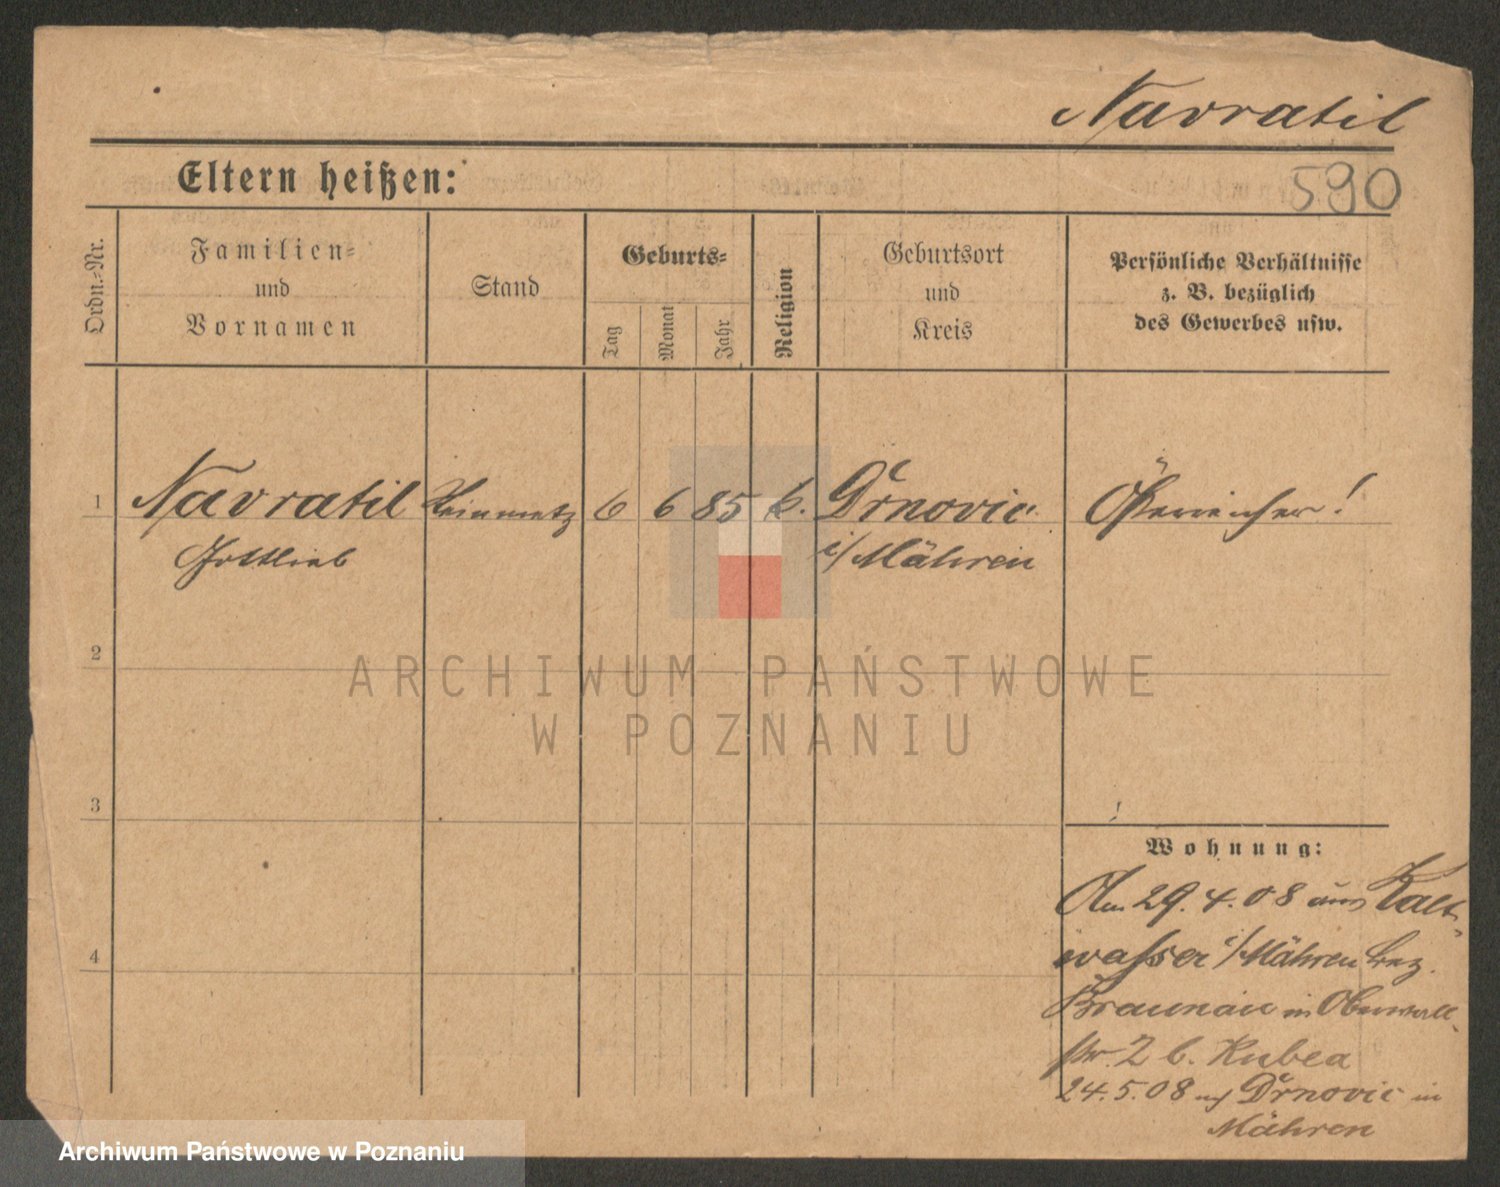 Navratil
590
Eltern heißen:
Ordn.-Nr.
Familien-
und
Vornamen
Stand
Geburts-
Tag
Monat
Jahr
Religion
Geburtsort
und
Kreis
Persönliche Verhältnisse
z. B. bezüglich
des Gewerbes usw.
1 Navratil Steinmetz 6 6 85 k. Drnovic Österreicher!
Gottlieb i/Mähren
2
3
4
Wohnung:
Am 29.4.08 aus Kalt-
wasser i/Mähren Bez.
Braunau in Oberwall-
str. 2 b. Kubea
24.5.08 n/ Drnovic in
Mähren
ARCHIWUM PAŃSTWOWE
W POZNANIU
Archiwum Państwowe w Poznaniu